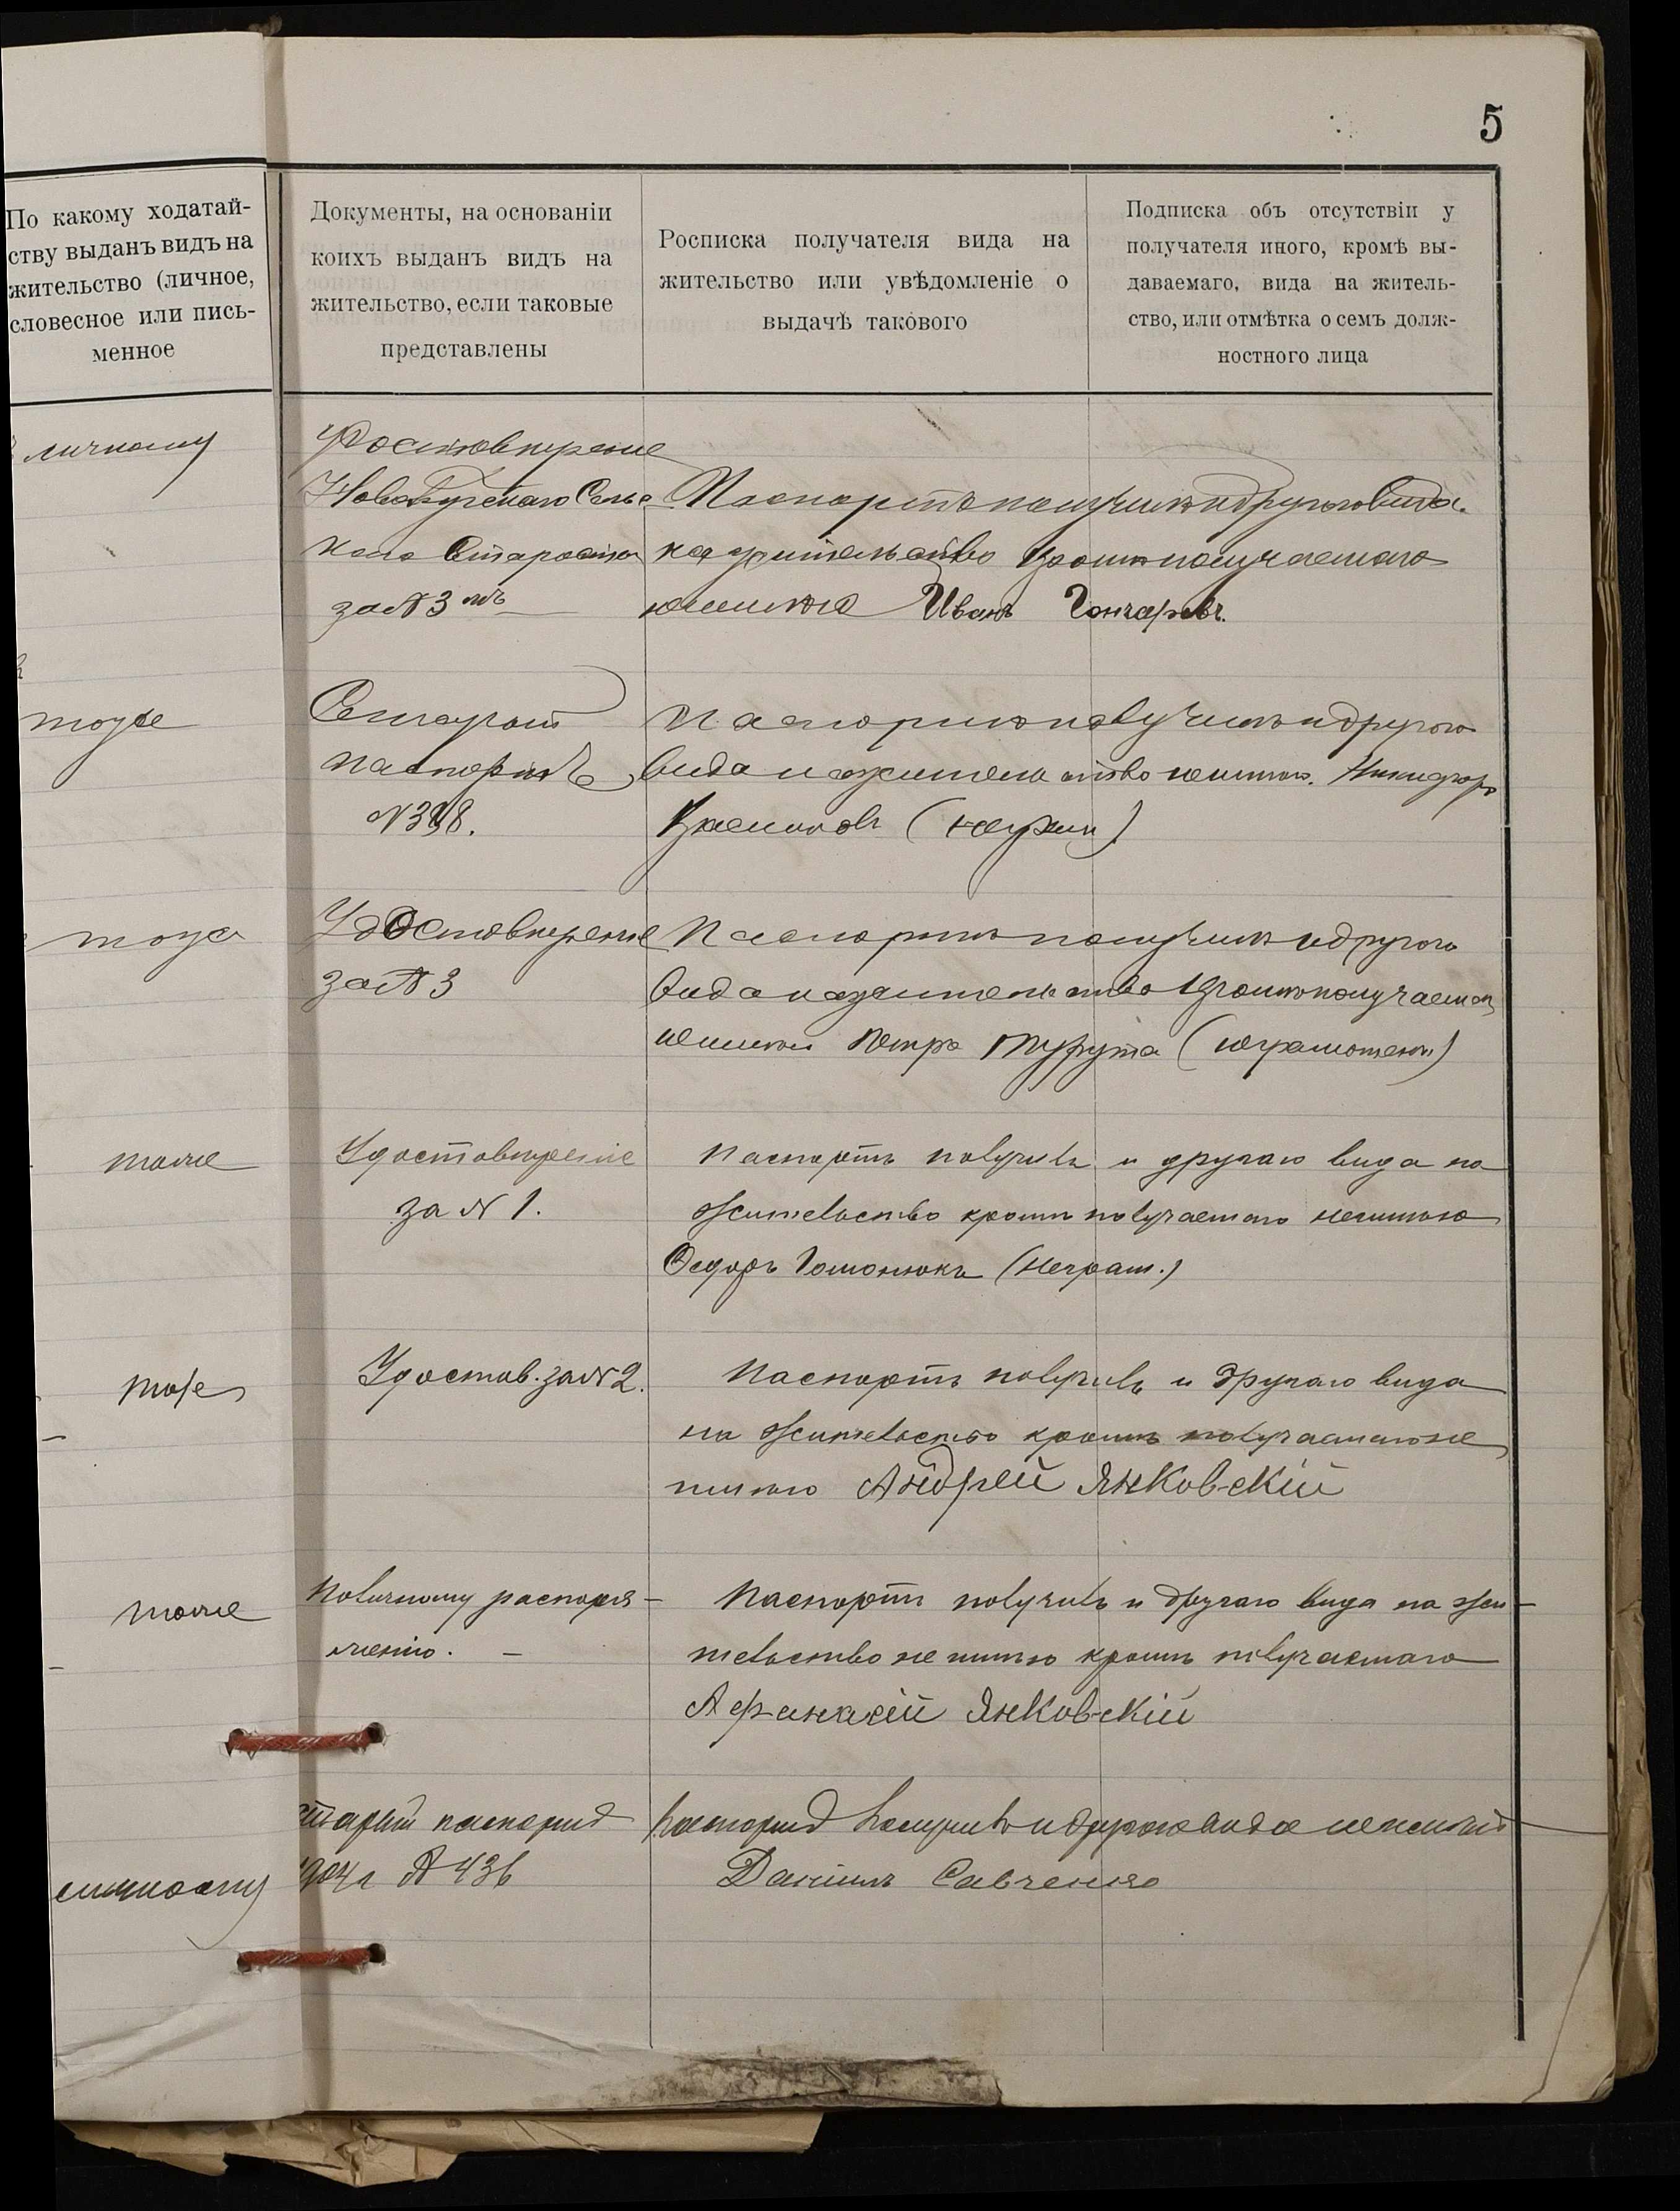 5
По какому ходатай-
ству выданъ видъ на
жительство (личное,
словесное или пись-
менное
Документы, на основаніи
коихъ выданъ видъ на
жительство, если таковые
представлены
Росписка получателя вида на
жительство или увѣдомленіе о
выдачѣ такового
Подписка объ отсутствіи у
получателя иного, кромѣ вы-
даваемаго, вида на житель-
ство, или отмѣтка о семъ долж-
ностного лица
личному
Удостовѣреніе
Новобугскаго Сельс
каго Старосты
за № 3
Паспортъ получилъ и другого вида
на жительство кромѣ получаемаго
не имѣю Иванъ Гончаровъ.
тоже
Старый
паспортъ
Паспортъ получилъ и другого
вида на жительство не имѣю. Никифоръ
(неграм)
тоже
Удостовѣреніе
за № 3
Паспортъ получилъ и другого
вида на жительство кромѣ получаемаго
не имѣю Петръ Турута (неграмотенъ)
тоже
Удостовѣреніе
за № 1.
Паспортъ получилъ и другаго вида на
жительство кромѣ получаемаго не имѣю
Ѳедоръ Гомонюкъ (Неграм.)
тоже
Удостов. за № 2.
Паспортъ получилъ и другаго вида
на жительство кромѣ получаемаго не
имѣю Андрей Янковскій
тоже
По личному распоря-
женію. –
Паспортъ получилъ и другаго вида на жи-
тельство не имѣю кромѣ получаемаго
Афанасій Янковскій
личному
старый паспортъ
1904 г № 436
Паспортъ получилъ и другого вида не имѣю
Даніилъ Савченко